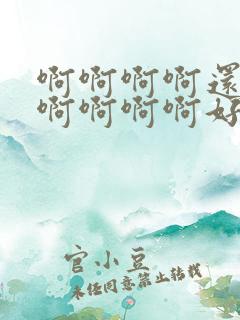 啊啊啊啊還
啊啊啊啊好
官小豆
未经同意禁止转载